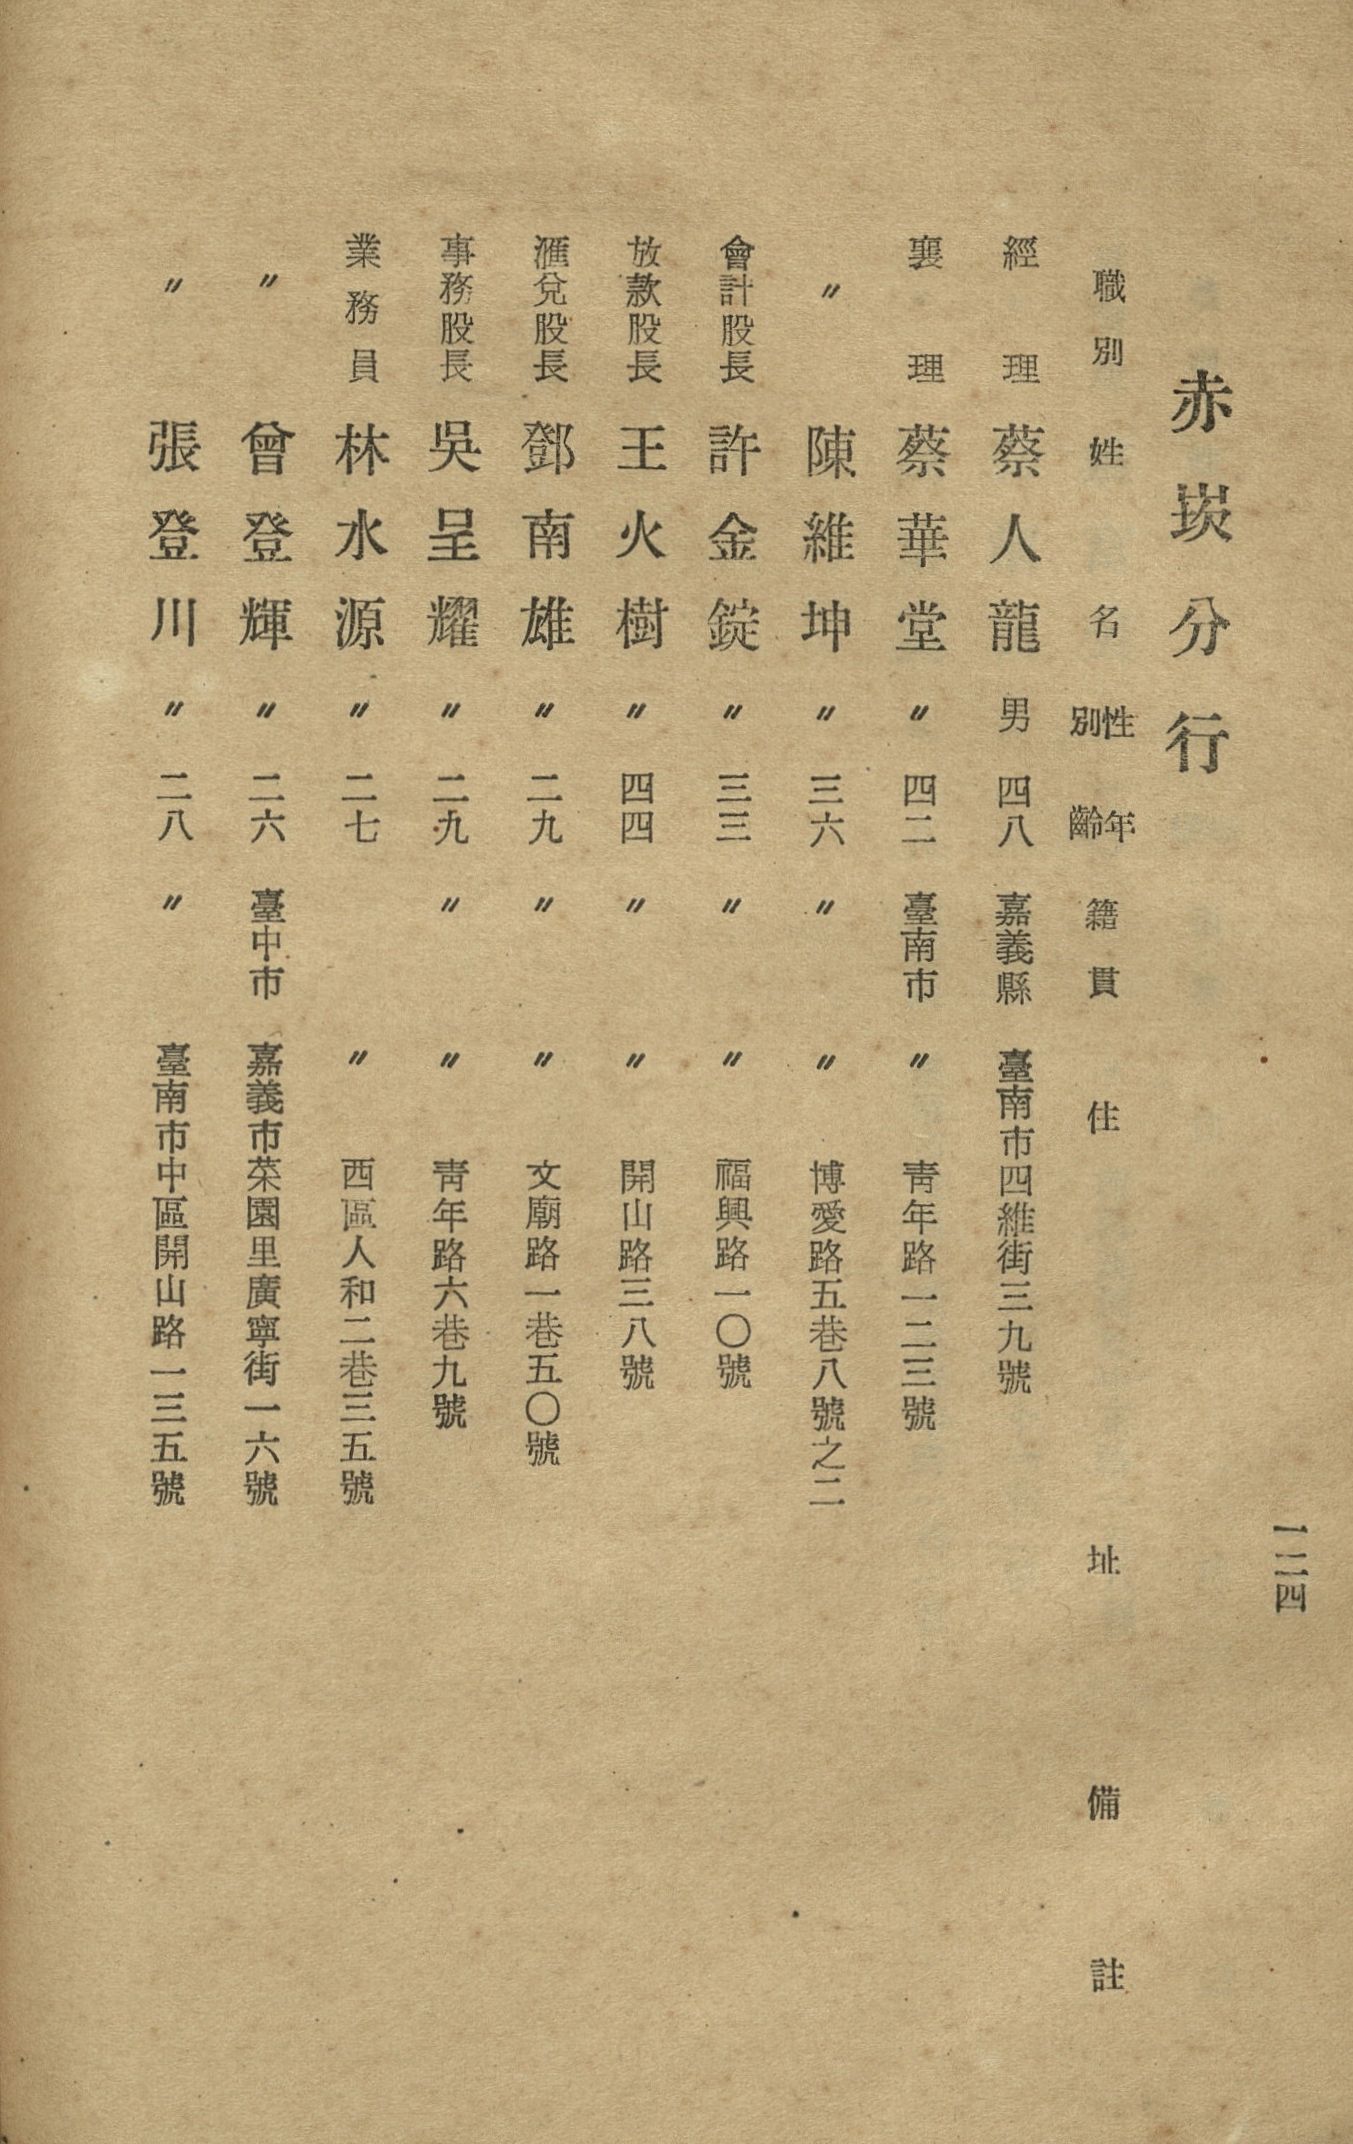 一二四
赤崁分行
職別 姓名 性別 年齡 籍貫 住址 備註
經理 蔡人龍 男 四八 嘉義縣 臺南市四維街三九號
襄理 蔡華堂 〃 四二 臺南市 〃 青年路一二三號
〃 陳維坤 〃 三六 〃 〃 博愛路五巷八號之二
會計股長 許金錠 〃 三三 〃 〃 福興路一〇號
放款股長 王火樹 〃 四四 〃 〃 開山路三八號
滙兌股長 鄧南雄 〃 二九 〃 〃 文廟路一巷五〇號
事務股長 吳呈耀 〃 二九 〃 〃 青年路六巷九號
業務員 林水源 〃 二七 〃 西區人和二巷三五號
〃 曾登輝 〃 二六 臺中市 嘉義市菜園里廣寧街一六號
〃 張登川 〃 二八 〃 臺南市中區開山路一三五號